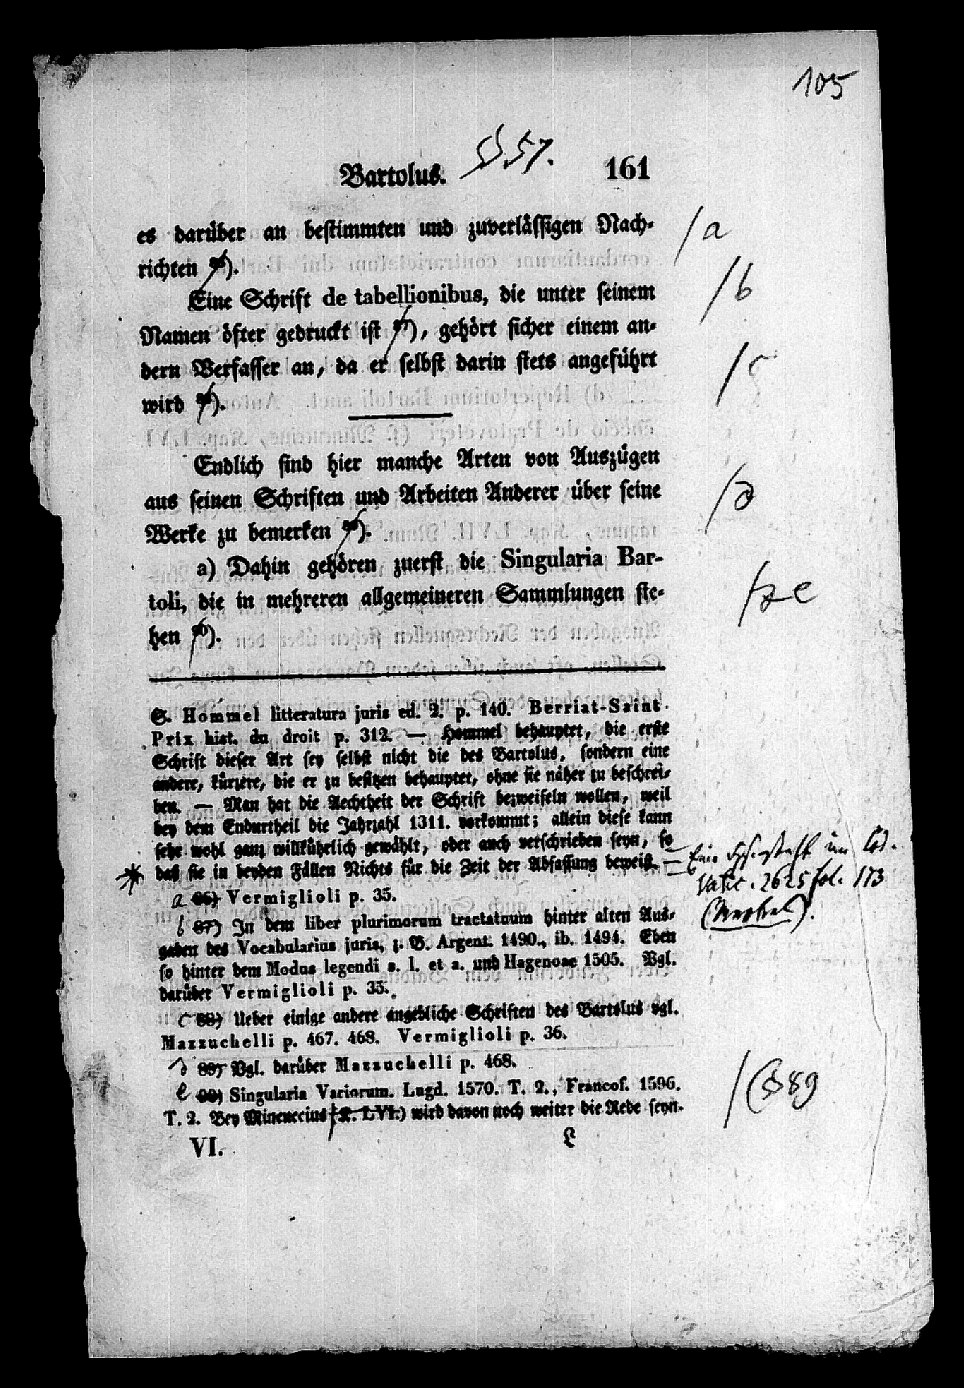 105
Bartolus. § 57. 161
es darüber an bestimmten und zuverlässigen Nach-
richten 86).
Eine Schrift de tabellionibus, die unter seinem
Namen öfter gedruckt ist 87), gehört sicher einem an-
dern Verfasser an, da er selbst darin stets angeführt
wird 88).
Endlich sind hier manche Arten von Auszügen
aus seinen Schriften und Arbeiten Anderer über seine
Werke zu bemerken 89).
a) Dahin gehören zuerst die Singularia Bar-
toli, die in mehreren allgemeineren Sammlungen ste-
hen 90).
/a
/b
/c
/d
/e
S. Hommel litteratura juris ed. 2. p. 140. Berriat-Saint-
Prix hist. du droit p. 312. — Hommel behauptet, die erste
Schrift dieser Art sey selbst nicht die des Bartolus, sondern eine
andere, kürzere, die er zu besitzen behauptet, ohne sie näher zu beschrei-
ben. — Man hat die Aechtheit der Schrift bezweifeln wollen, weil
bey dem Endurtheil die Jahrzahl 1311. vorkommt; allein diese kann
sehr wohl ganz willkührlich gewählt, oder auch verschrieben seyn, so
daß sie in beyden Fällen Nichts für die Zeit der Abfassung beweist. —
Eine Handschrift im Cod.
Vatic. 2625 fol. 173
a 86) Vermiglioli p. 35.
b 87) In dem liber plurimorum tractatuum hinter alten Aus-
gaben des Vocabularius juris, z. B. Argent. 1490., ib. 1494. Eben
so hinter dem Modus legendi s. l. et a. und Hagenoae 1505. Vgl.
darüber Vermiglioli p. 35.
c 88) Ueber einige andere angebliche Schriften des Bartolus vgl.
Mazzuchelli p. 467. 468. Vermiglioli p. 36.
d 89) Vgl. darüber Mazzuchelli p. 468.
e 90) Singularia Variorum. Lugd. 1570. T. 2., Francof. 1596.
T. 2. Bey Minuccius (K. LVI.) wird davon noch weiter die Rede seyn.
/(§ 89
VI. L